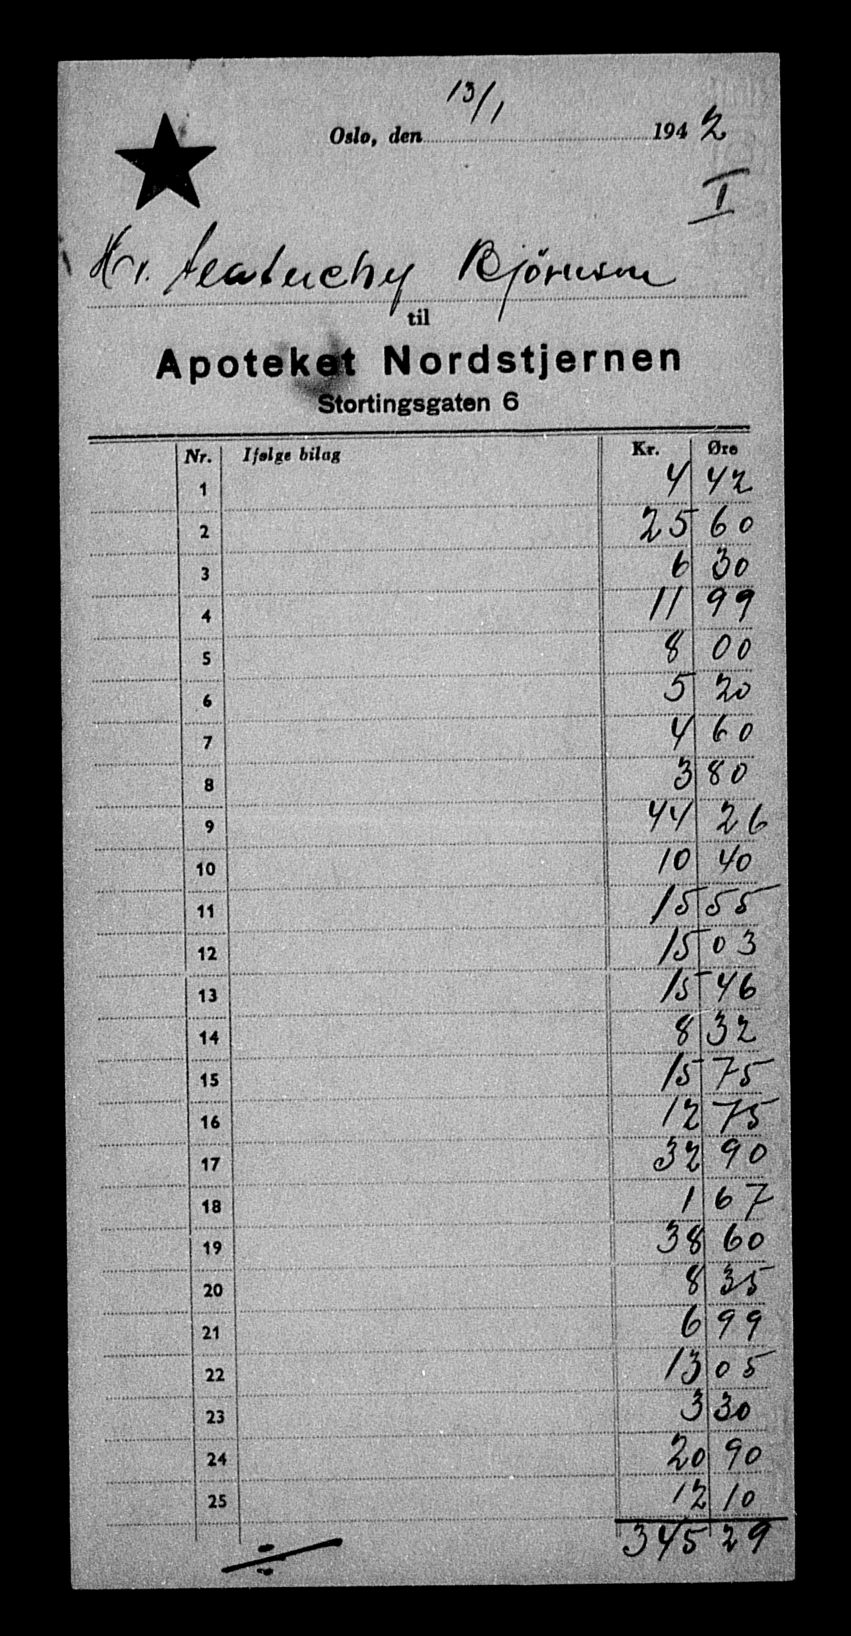 13/1
Oslo, den 1942
I
Hr. Bjørnson
til
Apoteket Nordstjernen
Stortingsgaten 6
Nr. Ifølge bilag Kr. Øre
1 4 42
2 25 60
3 6 30
4 11 99
5 8 00
6 5 20
7 4 60
8 3 80
9 44 26
10 10 40
11 15 55
12 15 03
13 15 46
14 8 32
15 15 75
16 12 75
17 32 90
18 1 67
19 38 60
20 8 35
21 6 99
22 13 05
23 3 30
24 20 90
25 12 10
345 29